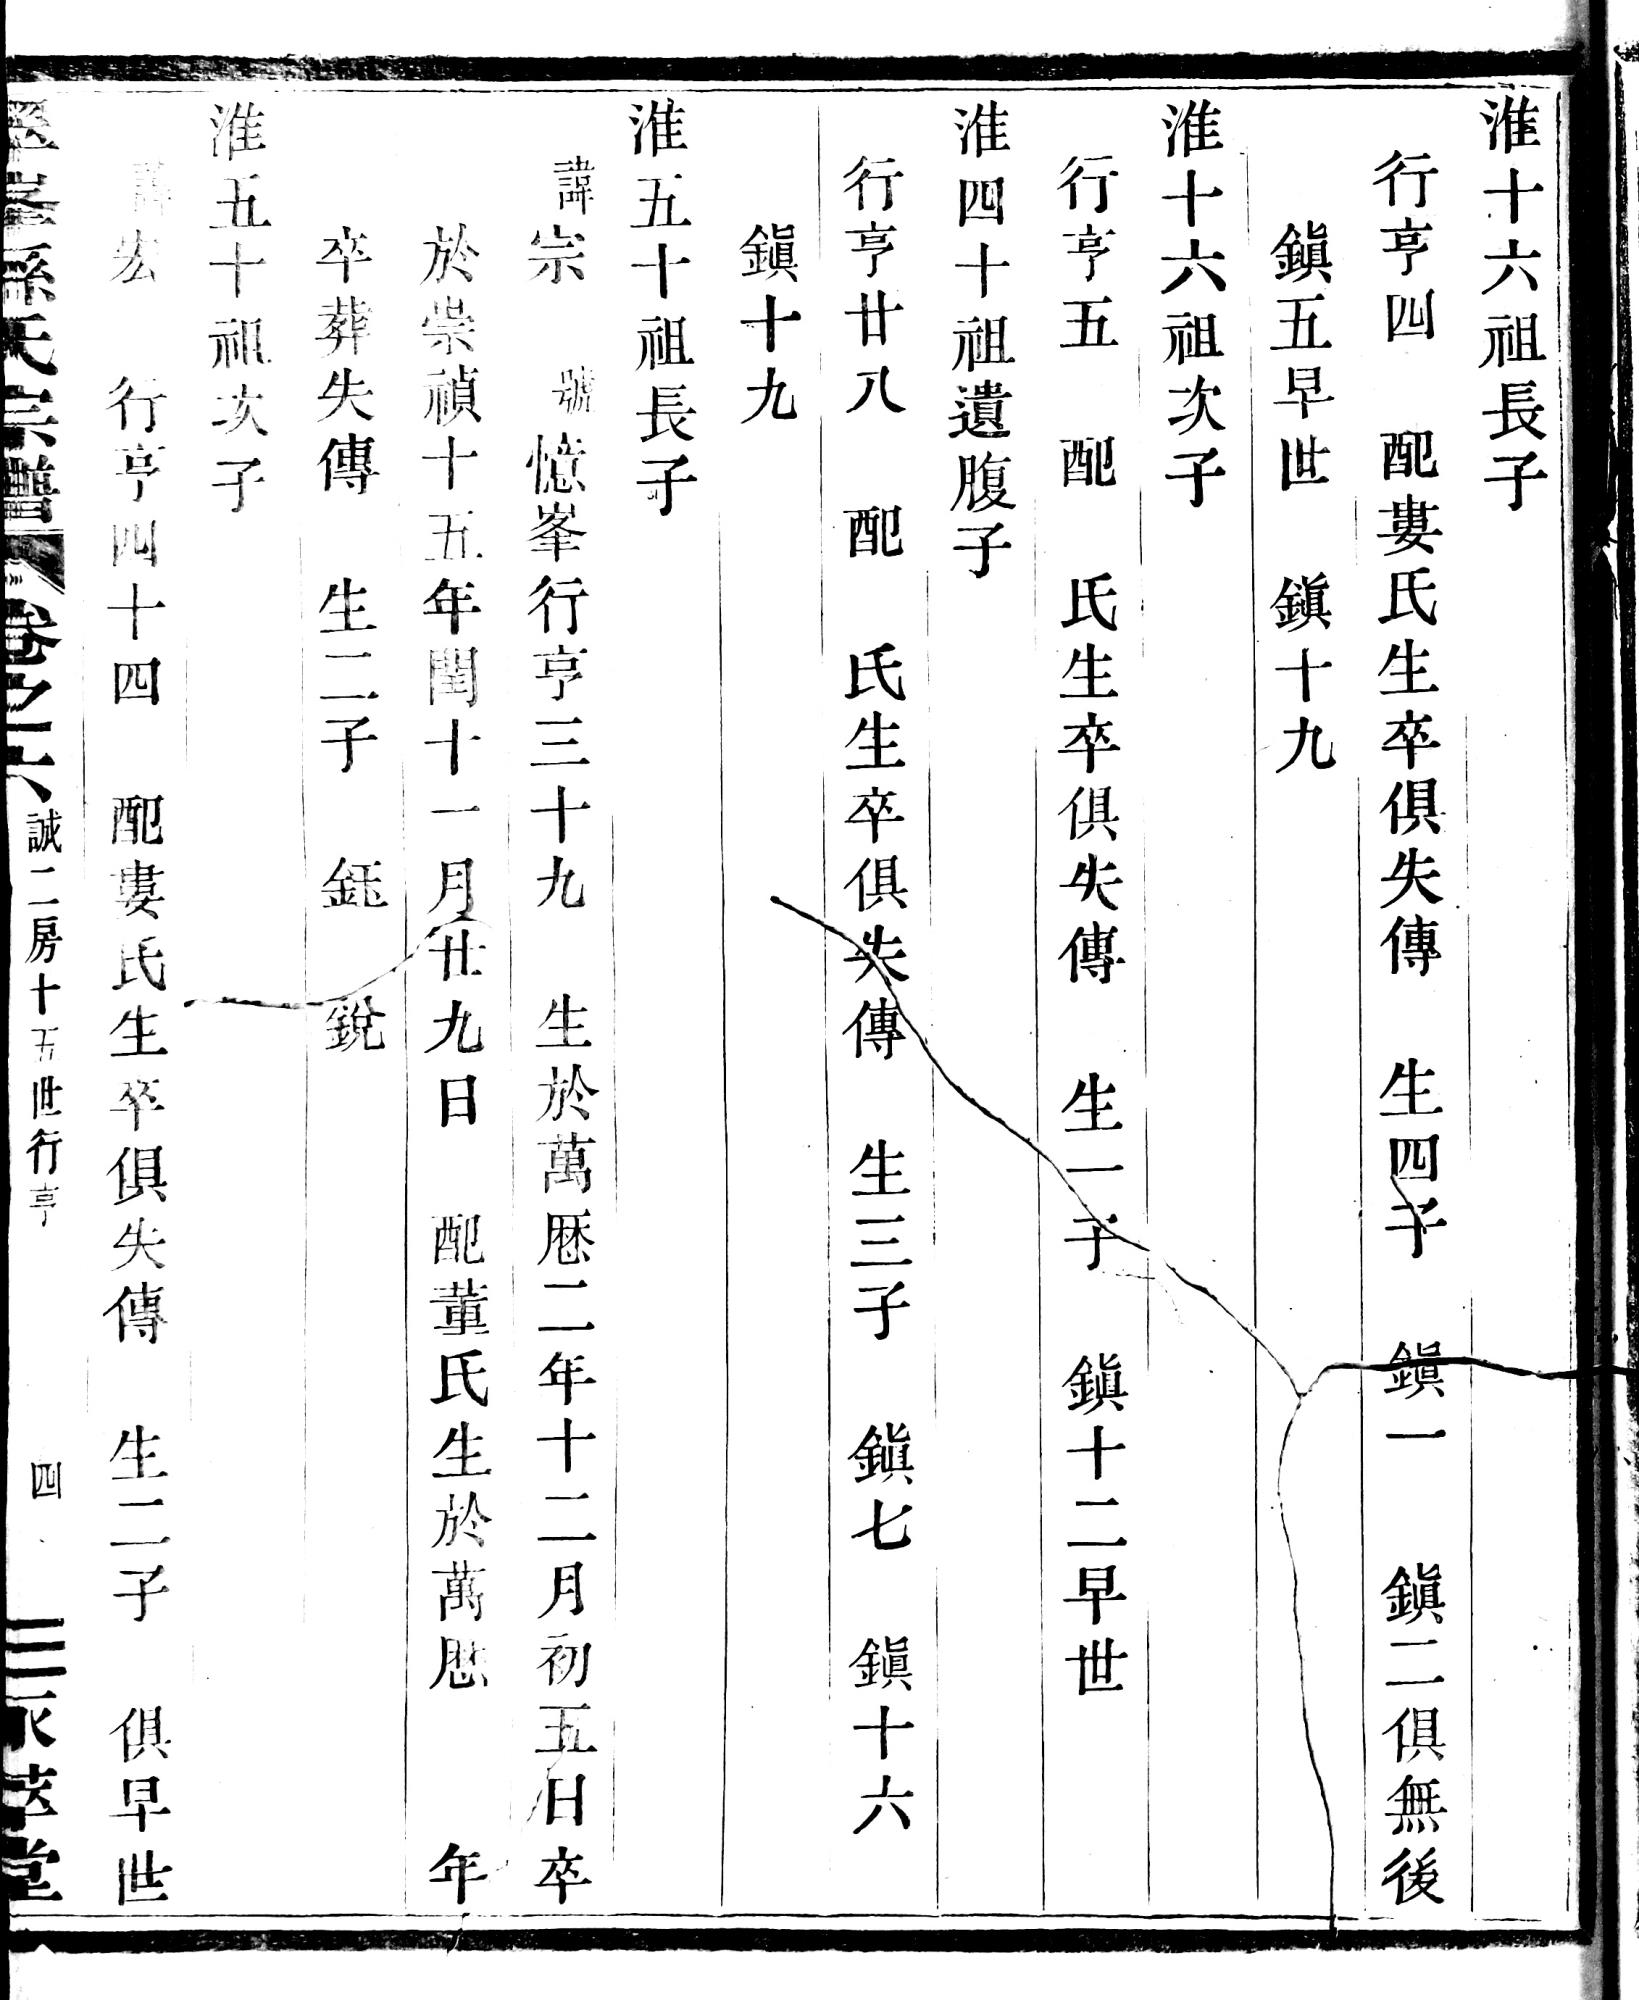 淮十六祖長子
行亨四　配婁氏生卒俱失傳　生四子　鎭一　鎭二俱無後
鎭五早世　鎭十九
淮十六祖次子
行亨五　配　氏生卒俱失傳　生一子　鎭十二早世
淮四十祖遺腹子
行亨廿八　配　氏生卒俱失傳　生三子　鎭七　鎭十六
鎭十九
淮五十祖長子
諱宗　號憶峯行亨三十九　生於萬厯二年十二月初五日卒
於崇禎十五年閏十一月廿九日　配董氏生於萬厯　年
卒葬失傳　生二子　鈺　銳
淮五十祖次子
諱宏　行亨四十四　配婁氏生卒俱失傳　生二子　俱早世
孫氏宗譜　卷之六　誠二房十五世行亨　四　堂